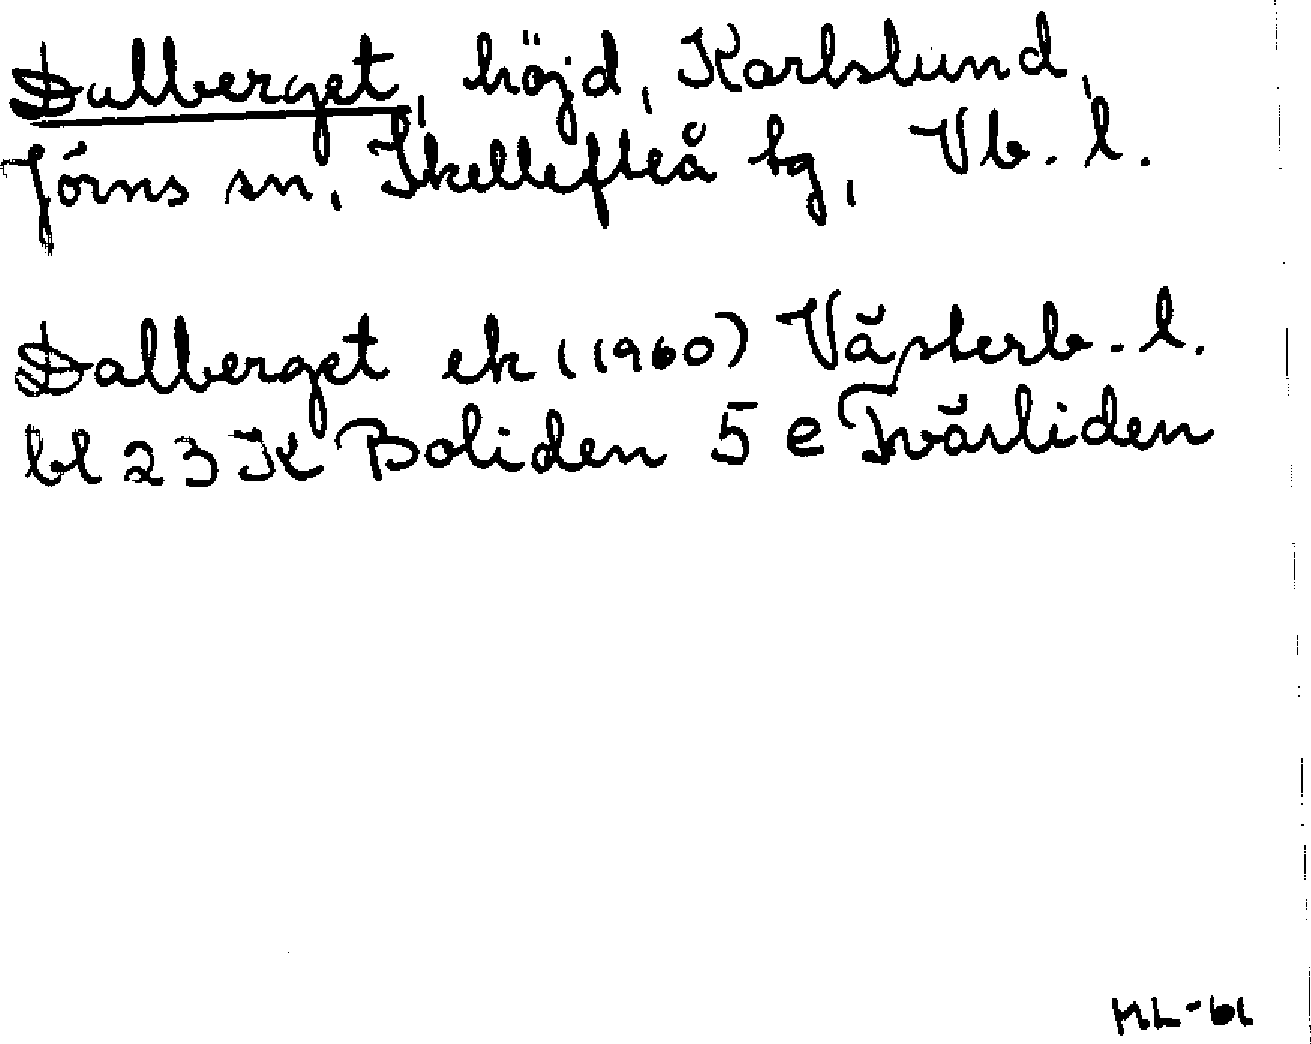 Dalberget, höjd, Karlslund,
Jörns sn, Skellefteå tg, Vb. l.
Dalberget ek (1960) Västerb. l.
bl 23 K Boliden 5 e Tvärliden